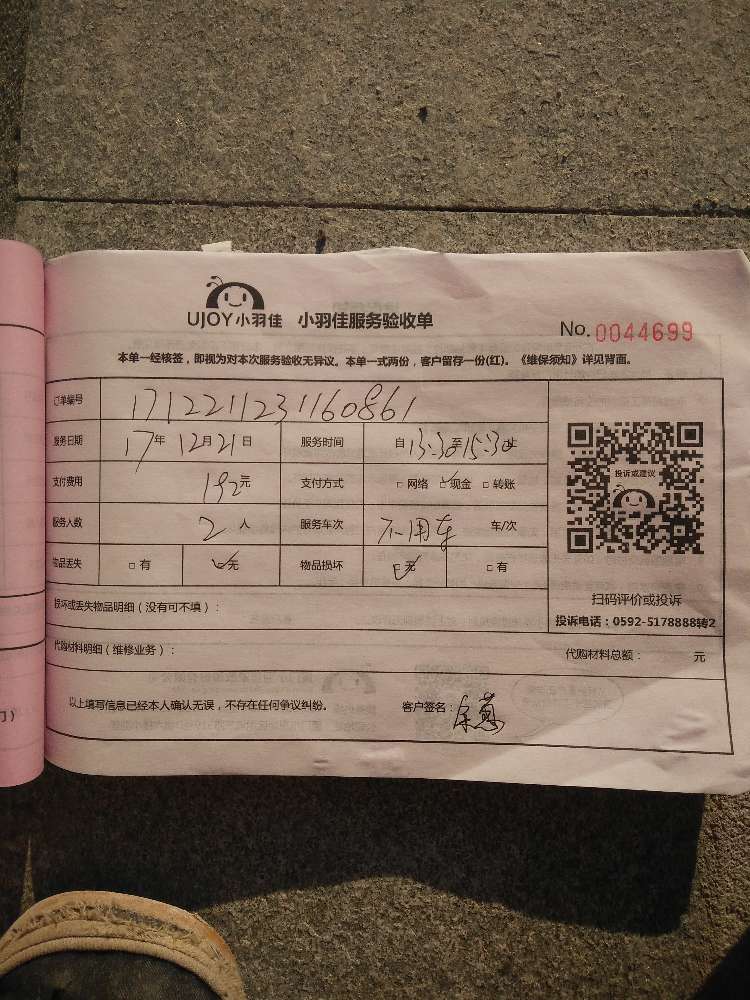 UJOY小羽佳 小羽佳服务验收单
No. 0044699
本单一经核签，即视为对本次服务验收无异议。本单一式两份，客户留存一份(红)。《维保须知》详见背面。
订单编号 1712211231160861
服务日期 17年 12月21日 服务时间 自13:30至15:30止
支付费用 192元 支付方式 □网络 ☑现金 □转账
服务人数 2人 服务车次 不用车 车/次
物品丢失 □有 ☑无 物品损坏 ☑无 □有
投诉或建议
扫码评价或投诉
投诉电话：0592-5178888转2
损坏或丢失物品明细（没有可不填）：
代购材料明细（维修业务）： 代购材料总额： 元
以上填写信息已经本人确认无误，不存在任何争议纠纷。 客户签名：